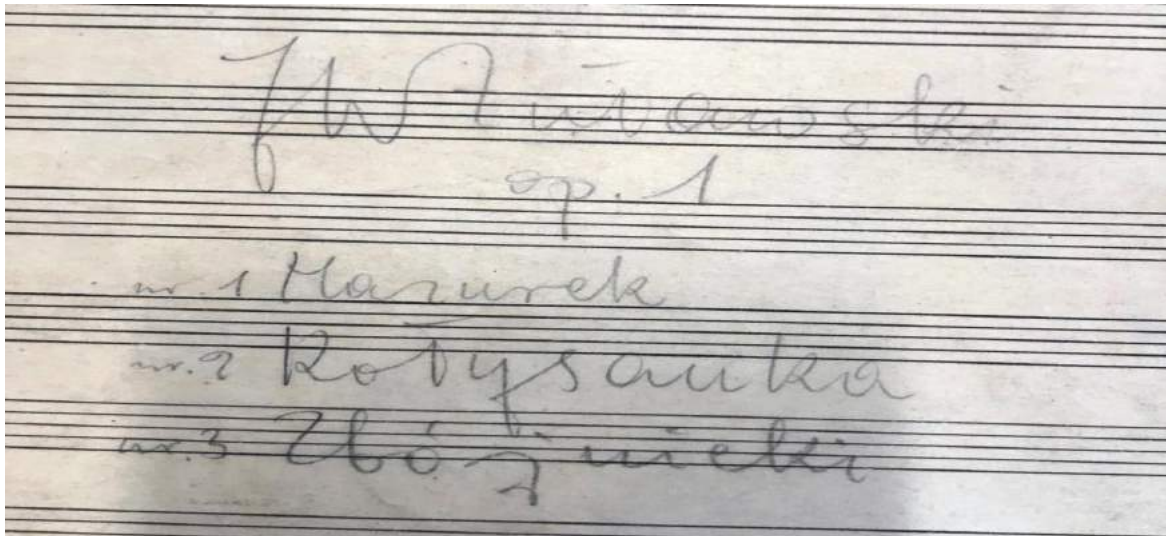 JW Żuławski
op. 1
nr. 1 Mazurek
nr. 2 Kołysanka
nr. 3 Zbójnicki